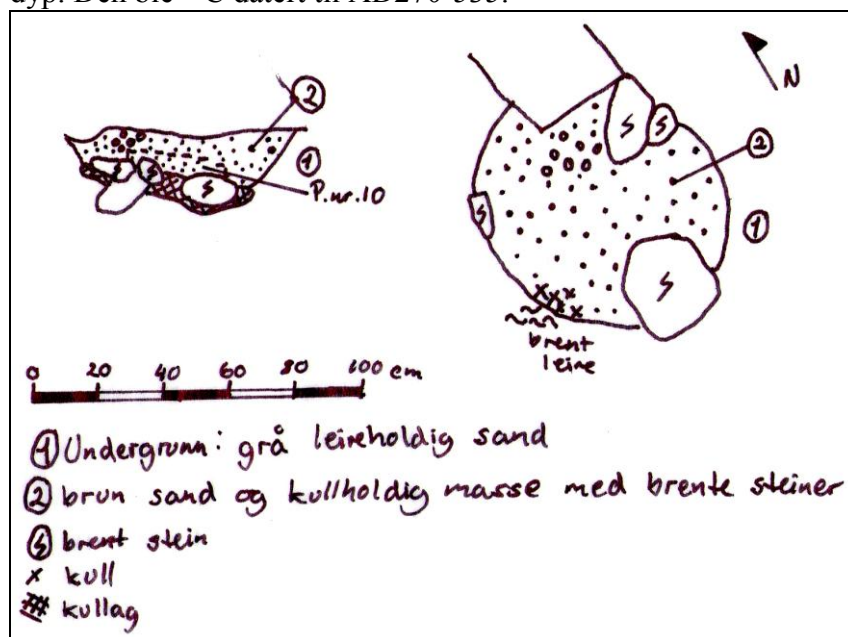 2
1
P.nr.10
N
2
1
brent
leire
0 20 40 60 80 100 cm
① Undergrunn: grå leireholdig sand
② brun sand og kullholdig masse med brente steiner
brent stein
x kull
kullag